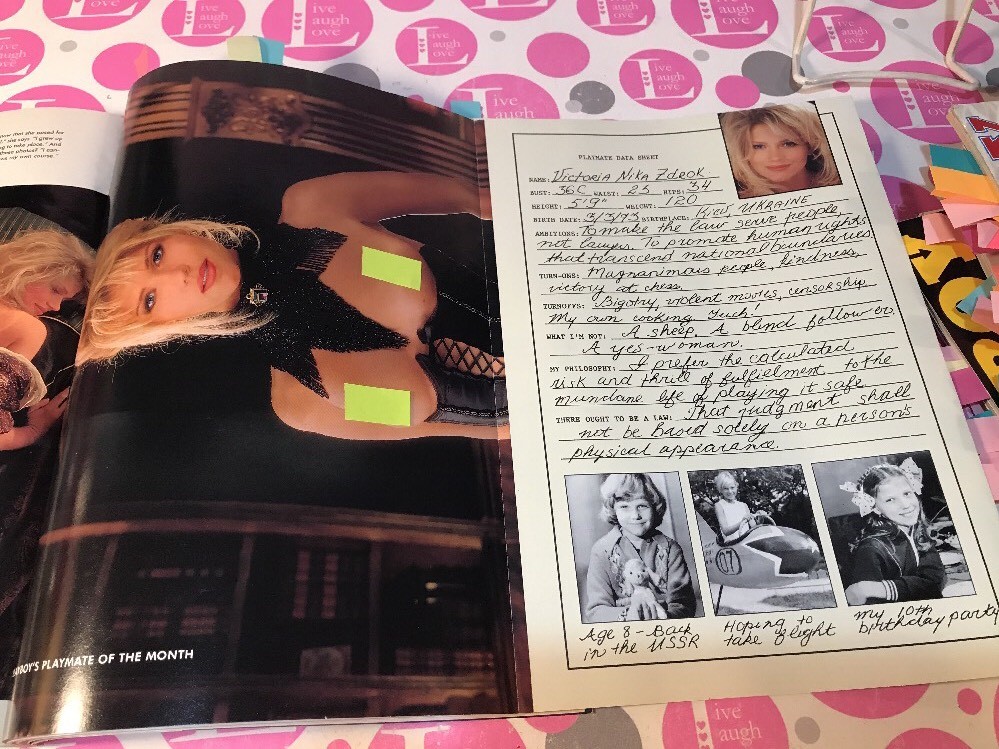 PLAYMATE DATA SHEET
NAME: Victoria Nika Zdrok
BUST: 36C WAIST: 25 HIPS: 34
HEIGHT: 5'9" WEIGHT: 120
BIRTH DATE: 3/3/73 BIRTHPLACE: Kiev, UKRAINE
AMBITIONS: To make the law serve people,
not lawyers. To promote human rights
that transcend national boundaries.
TURN-ONS: Magnanimous people, kindness,
victory at chess.
TURNOFFS: Bigotry, violent movies, censorship
My own cooking. Yuch!
WHAT I'M NOT: A sheep. A blind follower.
A yes-woman.
MY PHILOSOPHY: I prefer the calculated
risk and thrill of fulfielment to the
mundane life of playing it safe.
THERE OUGHT TO BE A LAW: That judgment shall
not be based solely on a person's
physical appearance.
Age 8 - Back
in the USSR
Hoping to
take flight
My 10th
birthday party
PLAYBOY'S PLAYMATE OF THE MONTH
that she posed for
she says. "I grew up
to take place." And
these photos? "I
my own course."
Live
Laugh
Love